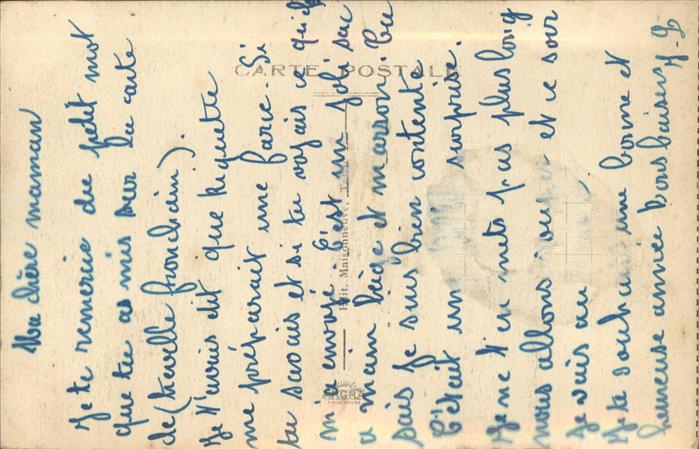 Ma chère maman
Je te remercie du petit mot
que tu as mis sur la carte
de
Je t'avais dit que
me préparait une farce. Si
tu savais et si tu voyais ce qu'il
m'a envoyé. C'est un joli sac
a main beige et marron. Tu
sais je suis bien contente
C'était une surprise.
Je ne t'en mets pas plus long
nous allons souper et ce soir
je vais au
Je te souhaite une bonne et
heureuse année bons baisers
CARTE POSTALE
Edit. Maisonneuve,